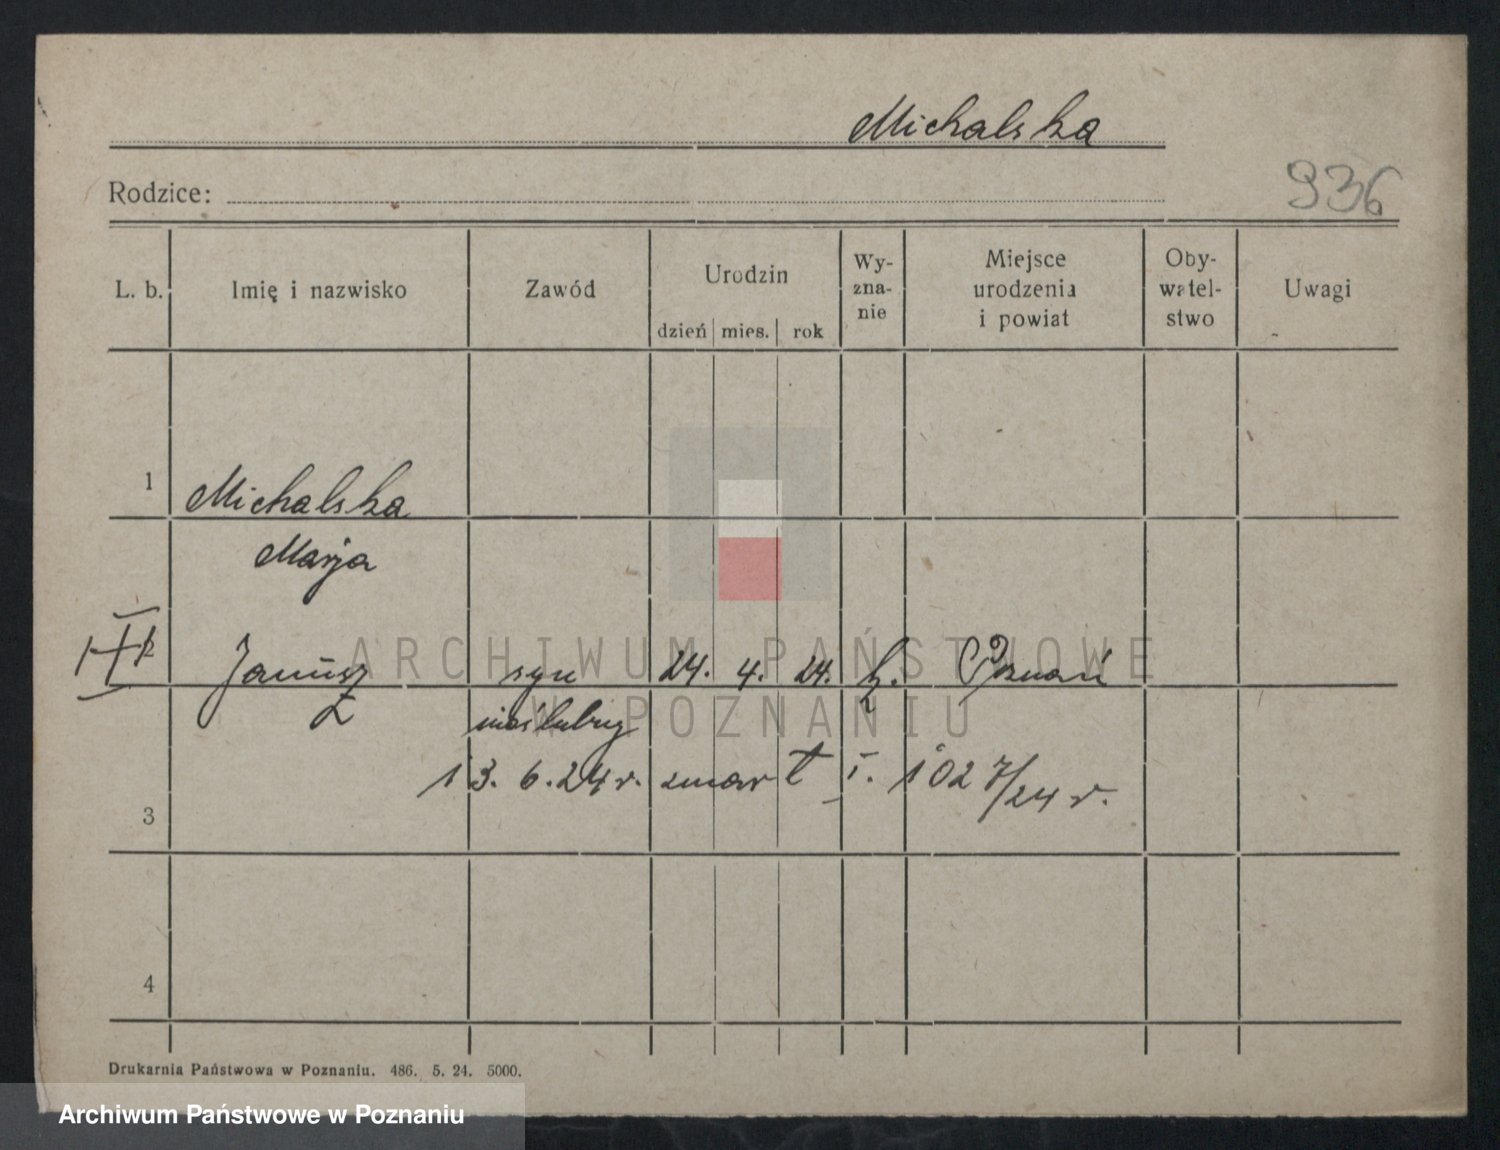 Michalska
Rodzice:
936
L. b.
Imię i nazwisko
Zawód
Urodzin
dzień mies. rok
Wy-
zna-
nie
Miejsce
urodzenia
i powiat
Oby-
watel-
stwo
Uwagi
1 Michalska
Marja
Janusz syn 24. 4. 24. k. Poznań
nieślubny
13. 6. 24 r. zmarł I. 1027/24 r.
3
4
Drukarnia Państwowa w Poznaniu. 486. 5. 24. 5000.
ARCHIWUM PAŃSTWOWE
W POZNANIU
Archiwum Państwowe w Poznaniu